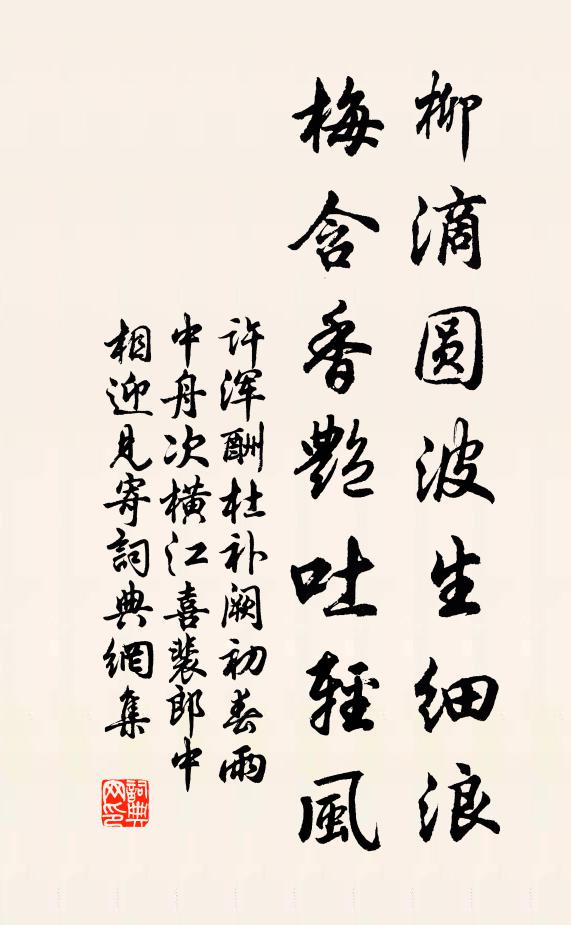 柳滴圆波生细浪
梅含香艳吐轻風
许浑酬杜补阙初春雨
中舟次横江喜裴郎中
相迎见寄詞典網集
詞典
网印